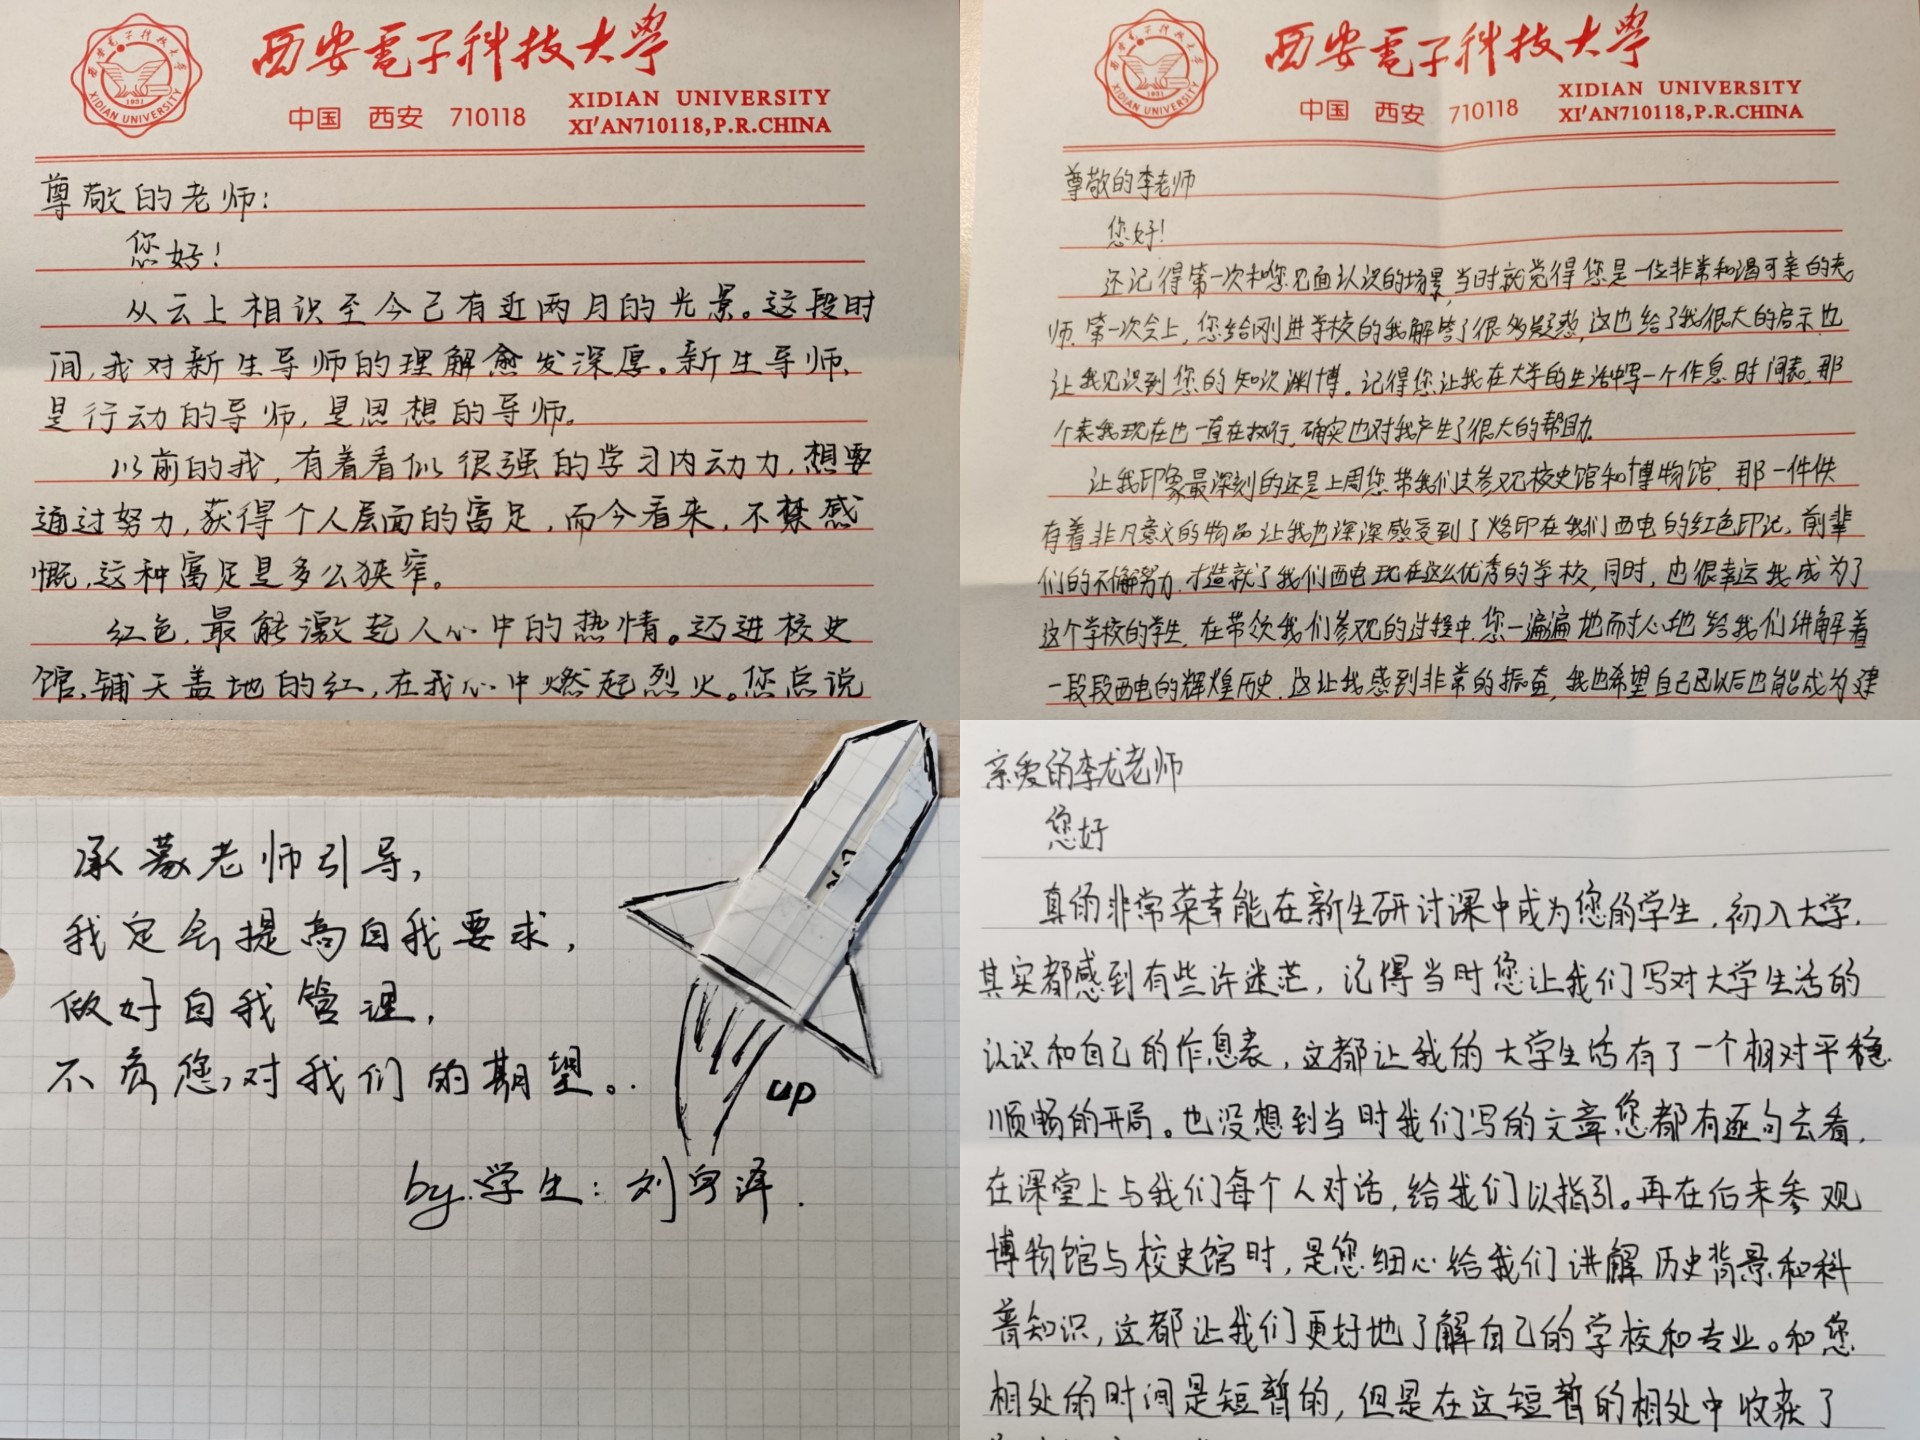 西安電子科技大學
中国 西安 710118
XIDIAN UNIVERSITY
XI'AN710118,P.R.CHINA
XIDIAN UNIVERSITY
1931
尊敬的老师：
您好！
从云上相识至今已有近两月的光景。这段时
间,我对新生导师的理解愈发深厚。新生导师,
是行动的导师,是思想的导师。
以前的我,有着看似很强的学习内动力,想要
通过努力,获得个人层面的富足,而今看来,不禁感
慨,这种富足是多么狭窄。
红色,最能激起人心中的热情。迈进校史
馆,铺天盖地的红,在我心中燃起烈火。您点说
西安電子科技大學
中国 西安 710118
XIDIAN UNIVERSITY
XI'AN710118,P.R.CHINA
XIDIAN UNIVERSITY
1931
尊敬的李老师
您好！
还记得第一次和您见面认识的场景,当时就觉得您是一位非常和谒可亲的老
师.第一次会上,您给刚进学校的我解答了很多疑惑,这也给了我很大的启示也
让我见识到您的知识渊博。记得您让我在大学的生活中写一个作息时间表,那
个表我现在也一直在执行,确实也对我产生了很大的帮助.
让我印象最深刻的还是上周您带我们去参观校史馆和博物馆.那一件件
有着非凡意义的物品让我也深深感受到了烙印在我们西电的红色印记,前辈
们的不懈努力.才造就了我们西电现在这么优秀的学校,同时,也很幸运我成为了
这个学校的学生.在带领我们参观的过程中,您一遍遍地耐心地给我们讲解着
一段段西电的辉煌历史.这让我感到非常的振奋,我也希望自己以后也能成为建
承蒙老师引导,
我定会提高自我要求,
做好自我管理,
不负您对我们的期望。
up
by.学生：刘宇泽.
亲爱的李龙老师
您好
真的非常荣幸能在新生研讨课中成为您的学生,初入大学,
其实都感到有些许迷茫,记得当时您让我们写对大学生活的
认识和自己的作息表,这都让我的大学生活有了一个相对平稳
顺畅的开局。也没想到当时我们写的文章您都有逐句去看,
在课堂上与我们每个人对话,给我们以指引。再在后来参观
博物馆与校史馆时,是您细心给我们讲解历史背景和科
普知识,这都让我们更好地了解自己的学校和专业。和您
相处的时间是短暂的,但是在这短暂的相处中收获了